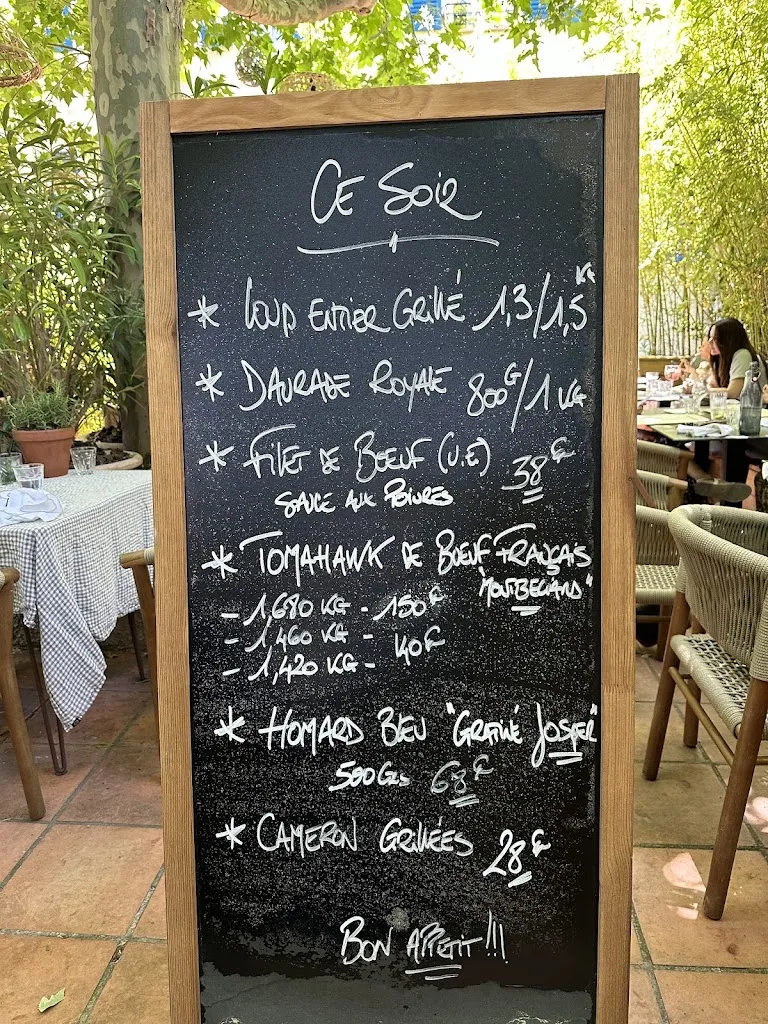 CE SOIR
* LOUP ENTIER GRILLÉ 1,3/1,5 KG
* DAURADE ROYALE 800G/1 KG
* FILET DE BOEUF (U.E) 38€
SAUCE AUX POIVRES
* TOMAHAWK DE BOEUF FRANÇAIS
"MONTBELIARD"
- 1,680 KG - 150€
- 1,460 KG -
- 1,420 KG - 40€
* HOMARD BLEU "GRATINÉ JOSPER"
500GRS 68€
* CAMERON GRILLÉES 28€
BON APPETIT!!!